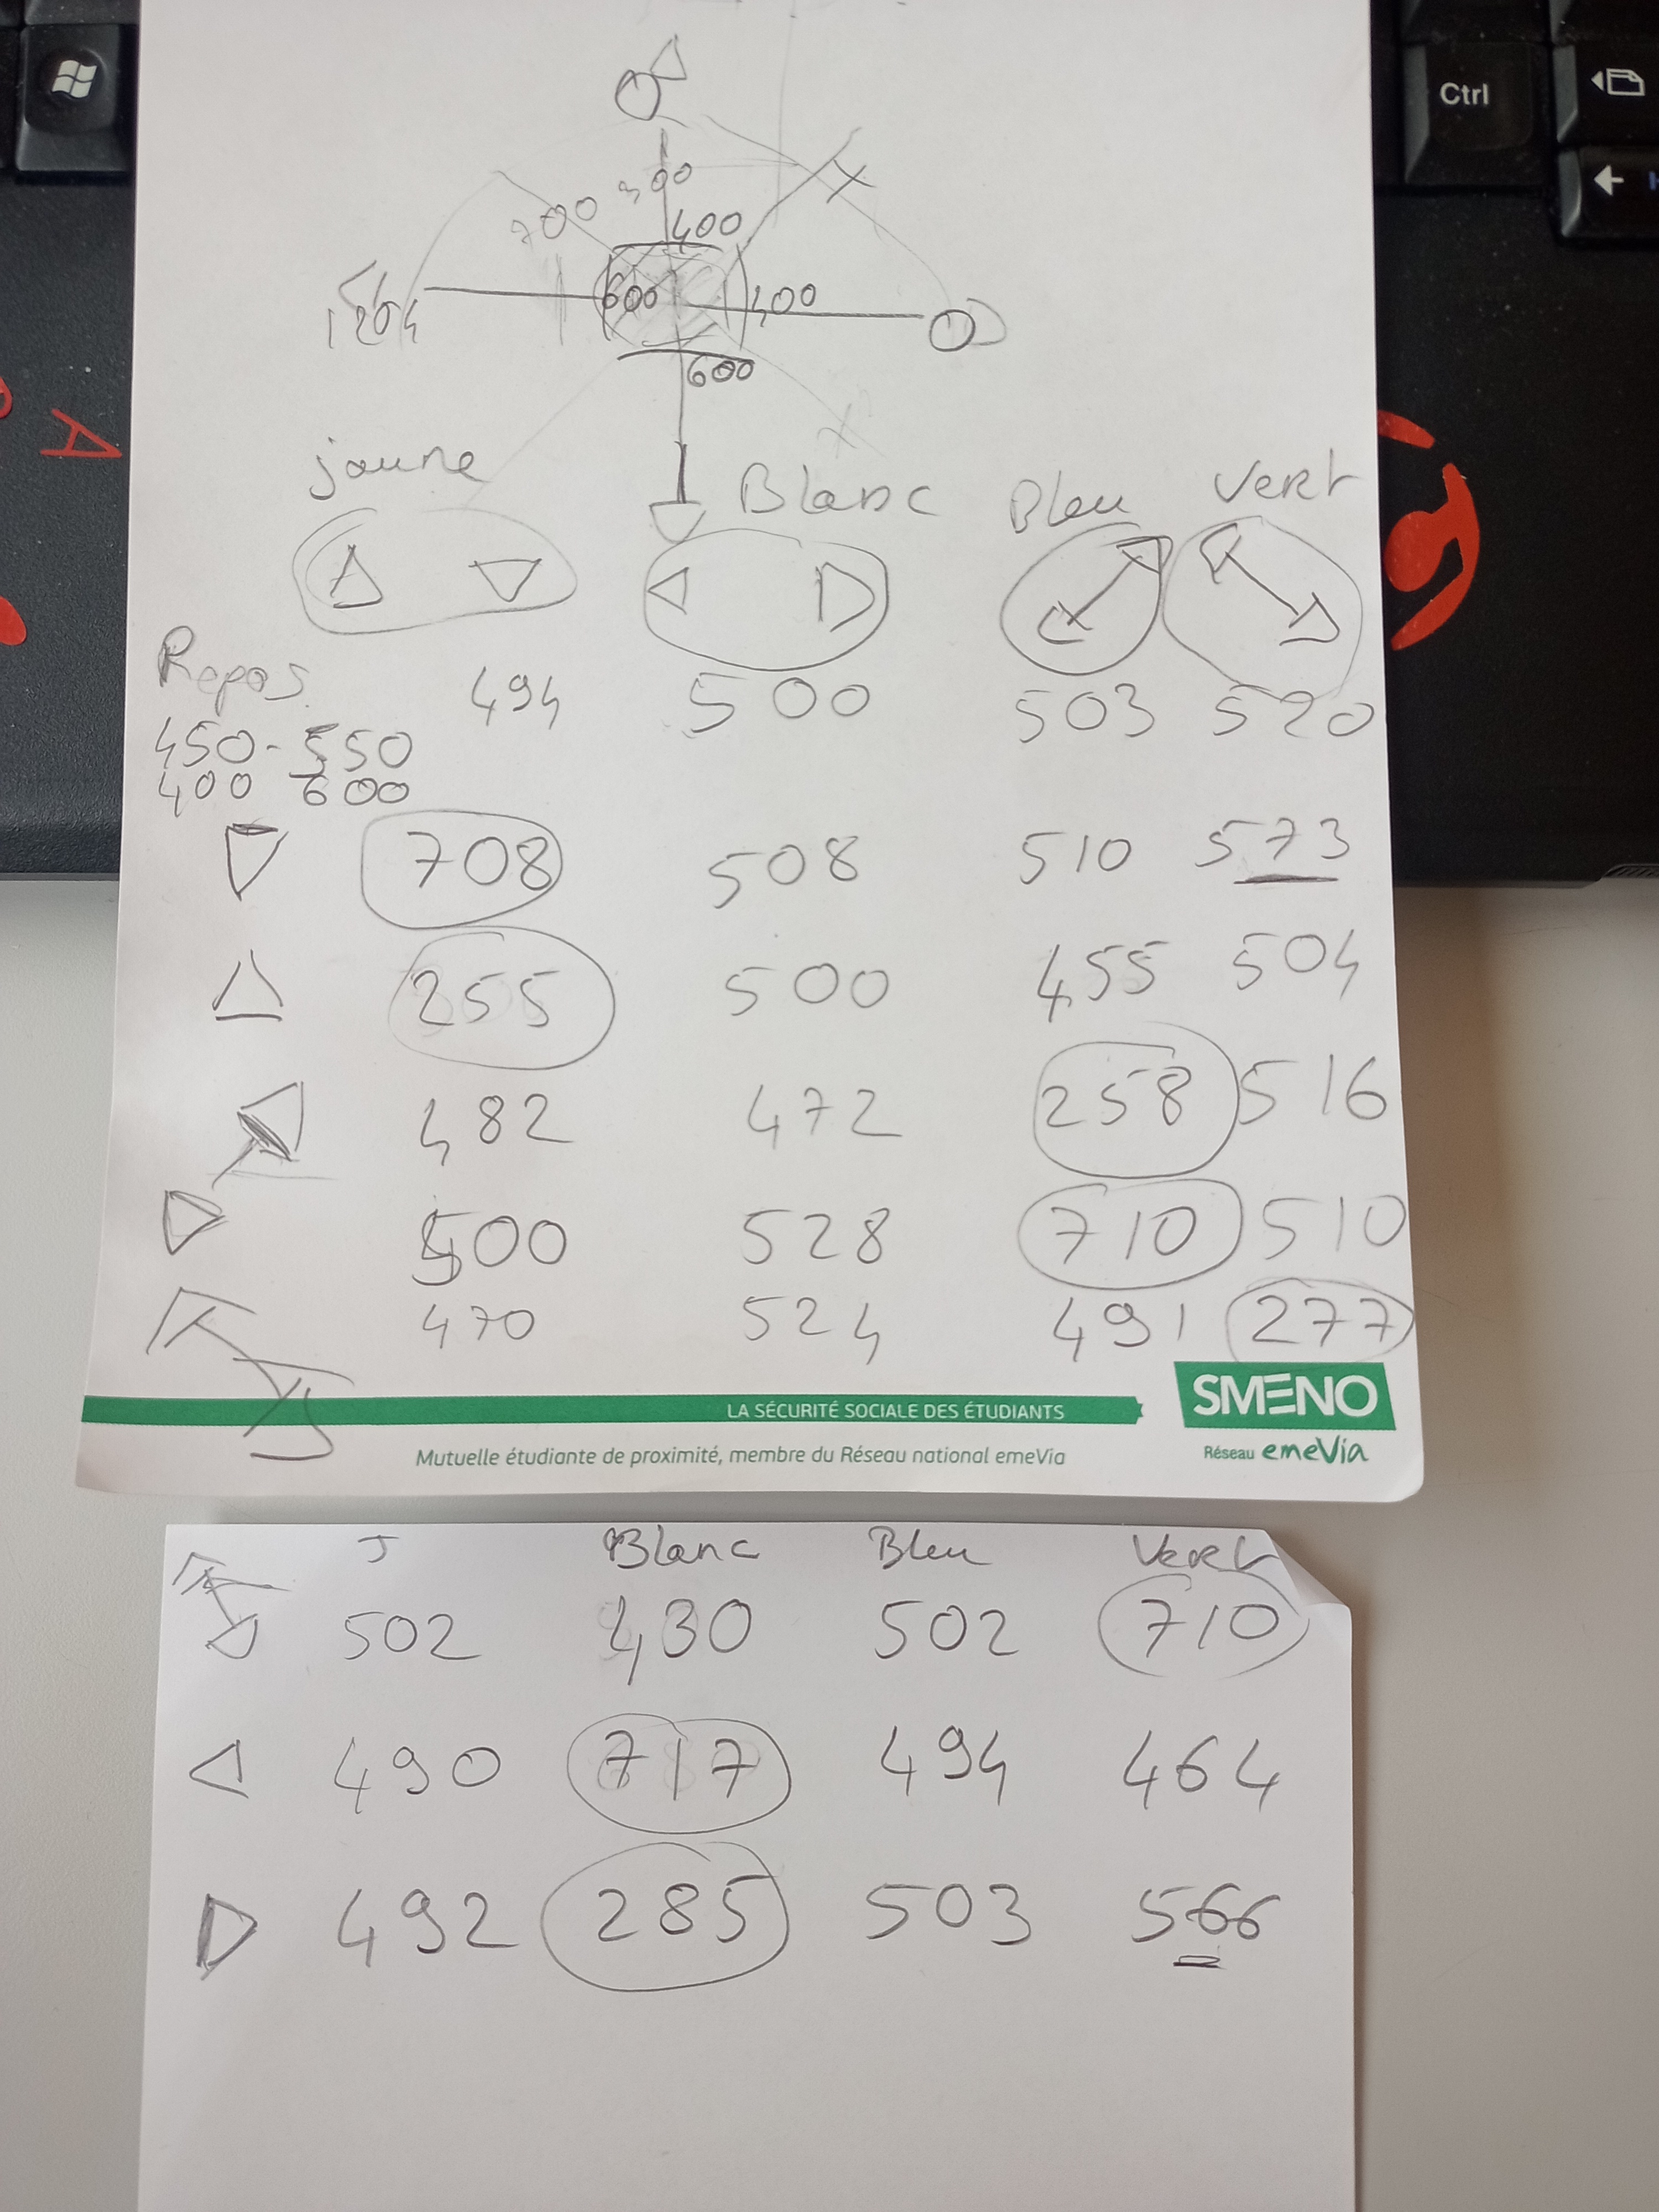 Ctrl
A
700 300 400
600 400
1024
600
jaune Blanc Bleu Vert
Repos 494 500 503 520
450-550
400 600
708 508 510 573
255 500 455 504
482 472 258 516
500 528 710 510
470 524 491 277
LA SÉCURITÉ SOCIALE DES ÉTUDIANTS
SMENO
Mutuelle étudiante de proximité, membre du Réseau national emeVia
Réseau emeVia
J Blanc Bleu Vert
502 430 502 710
490 717 494 464
492 285 503 566